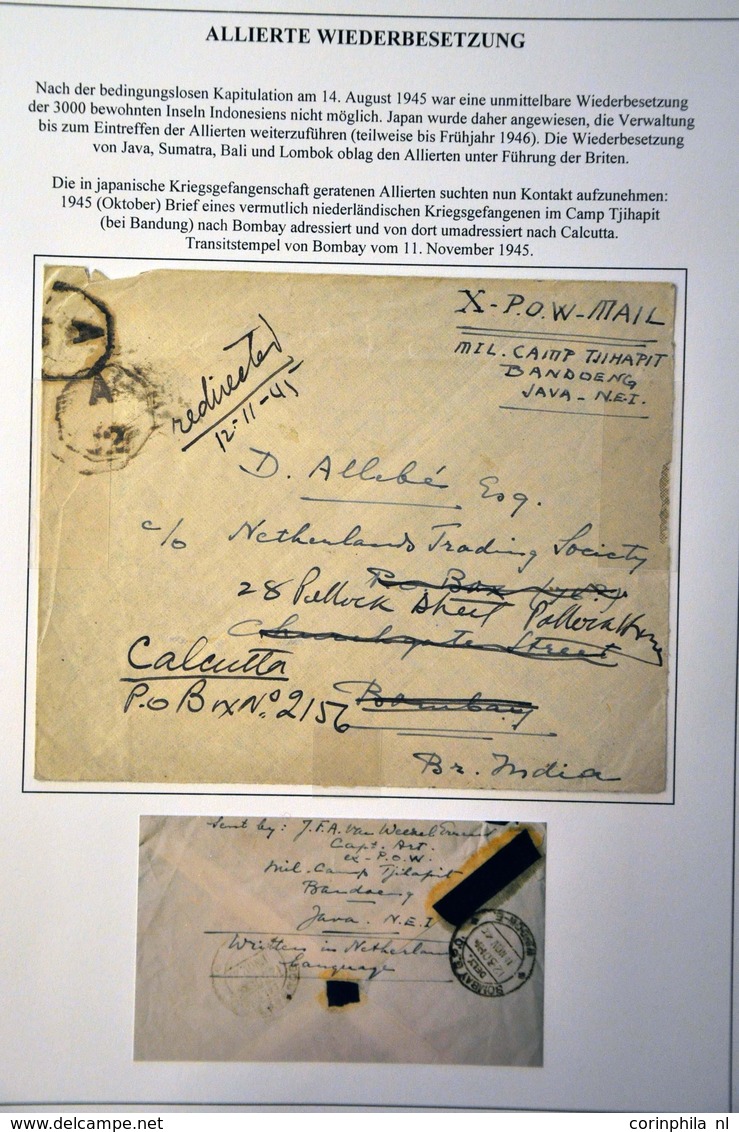 ALLIERTE WIEDERBESETZUNG
Nach der bedingungslosen Kapitulation am 14. August 1945 war eine unmittelbare Wiederbesetzung
der 3000 bewohnten Inseln Indonesiens nicht möglich. Japan wurde daher angewiesen, die Verwaltung
bis zum Eintreffen der Allierten weiterzuführen (teilweise bis Frühjahr 1946). Die Wiederbesetzung
von Java, Sumatra, Bali und Lombok oblag den Allierten unter Führung der Briten.
Die in japanische Kriegsgefangenschaft geratenen Allierten suchten nun Kontakt aufzunehmen:
1945 (Oktober) Brief eines vermutlich niederländischen Kriegsgefangenen im Camp Tjihapit
(bei Bandung) nach Bombay adressiert und von dort umadressiert nach Calcutta.
Transitstempel von Bombay vom 11. November 1945.
X-P.O.W-MAIL
MIL. CAMP TJIHAPIT
BANDOENG
JAVA-N.E.I.
redirected
12-11-45
A
A
D. Allebé Esq.
c/o Netherlands Trading Society
28 Pollock Street
Churchgate Street
Calcutta
P.O Box No. 2156
Bombay
Br. India
Sent by: J.F.A. van
Capt. Art.
ex-P.O.W.
Mil. Camp Tjihapit
Bandoeng
Java. N.E.I
Written in Netherland
Language
BOMBAY
corinphila nl